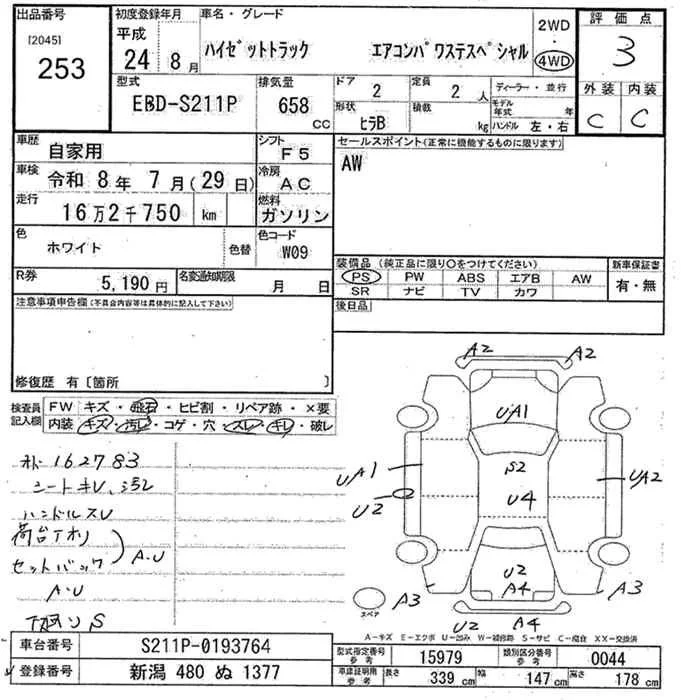 出品番号 初度登録年月 車名・グレード 2WD 評価点
[2045] 平成 ・
253 24 8月 ハイゼットトラック エアコンパワステスペシャル 4WD 3
型式 排気量 ドア 2 定員 2人 ディーラー・並行 外装 内装
EBD-S211P 658 cc 形状 ヒラB 積載 kg モデル年式 年 C C
ハンドル 左・右
車歴 自家用 シフト F5 セールスポイント(正常に機能するものに限ります)
車検 令和 8年 7月(29日) 冷房 AC AW
走行 16万2千750 km 燃料 ガソリン
色 ホワイト 色替 色コード W09
装備品 (純正品に限り○をつけてください) 新車保証書
R券 5,190円 名変通知期限 月 日 PS PW ABS エアB AW 有・無
SR ナビ TV カワ
注意事項申告欄(不具合内容等は具体的に記入して下さい) 後日品
修復歴 有〔箇所 〕
検査員 FW キズ・飛石・ヒビ割・リペア跡・×要
記入欄 内装 キズ・汚レ・コゲ・穴・スレ・キレ・破レ
162783
シートキレ、汚レ
ハンドルスレ
荷台
セットバック A・U
A・U
S
A2 A2
UA1
S2
UA1 UA2
U2 U4
U2
A4
A3 A3
スペア
U2 A4
A-キズ E-エクボ U-凹み W-補修跡 S-サビ C-腐食 XX-交換済
車台番号 S211P-0193764 型式指定番号 参考 15979 類別区分番号 参考 0044
登録番号 新潟 480 ぬ 1377 車庫証明用 参考 長さ 339 cm 幅 147 cm 高さ 178 cm